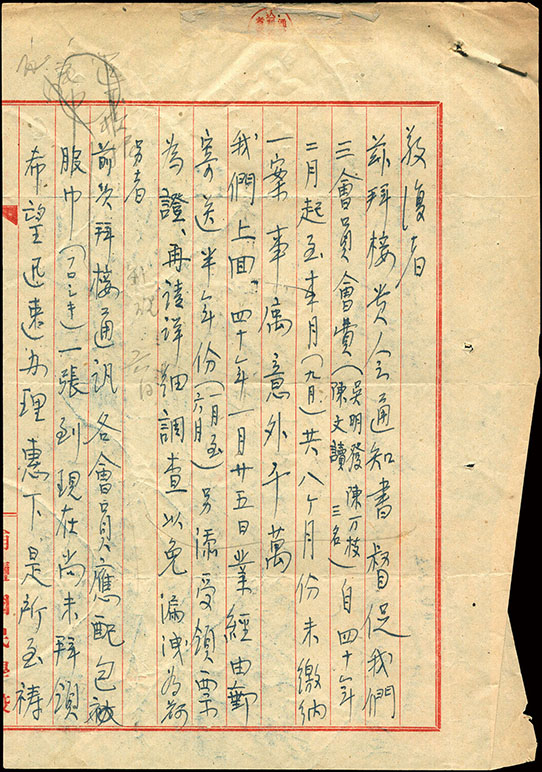 敬復者
茲拜接貴会通知書督促我們
三會員會費（吳明發 陳万枝 陳文讀 三名）自四十年
二月起至本月（九月）共八ケ月份未繳納
一案事属意外千萬
我們上面、四十年一月廿五日業經由郵
寄送半年份（一月至六月）另添受領票
為證、再請詳細調查以免漏洩為荷
另者
前次拜接通訊各會員應配包袱
服巾 一張到現在尚未拜領
希望迅速办理惠下是所至禱
國民學校